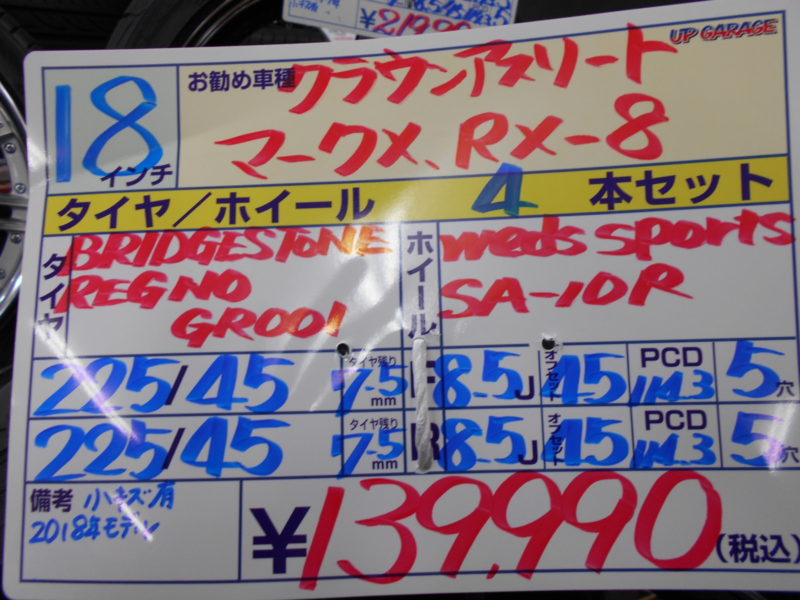 ¥219,990
UP GARAGE
18インチ
お勧め車種 クラウンアスリート
マークX、RX-8
タイヤ/ホイール 4 本セット
タイヤ
BRIDGESTONE
REGNO
GR001
ホイール
weds sports
SA-10R
225/45 タイヤ残り 7.5mm F 8.5J オフセット 45 PCD 114.3 5穴
225/45 タイヤ残り 7.5mm R 8.5J オフセット 45 PCD 114.3 5穴
備考 小キズ有
2018年モデル
¥139,990(税込)